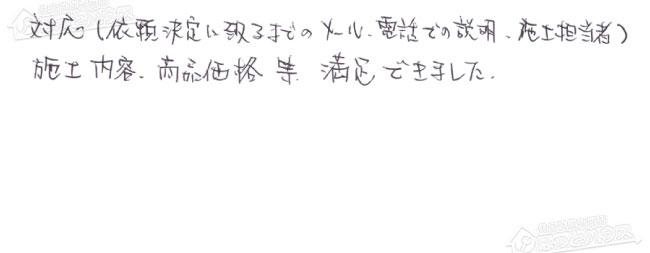 対応(依頼決定に致るまでのメール、電話での説明、施工担当者)
施工内容、商品価格等 満足できました。